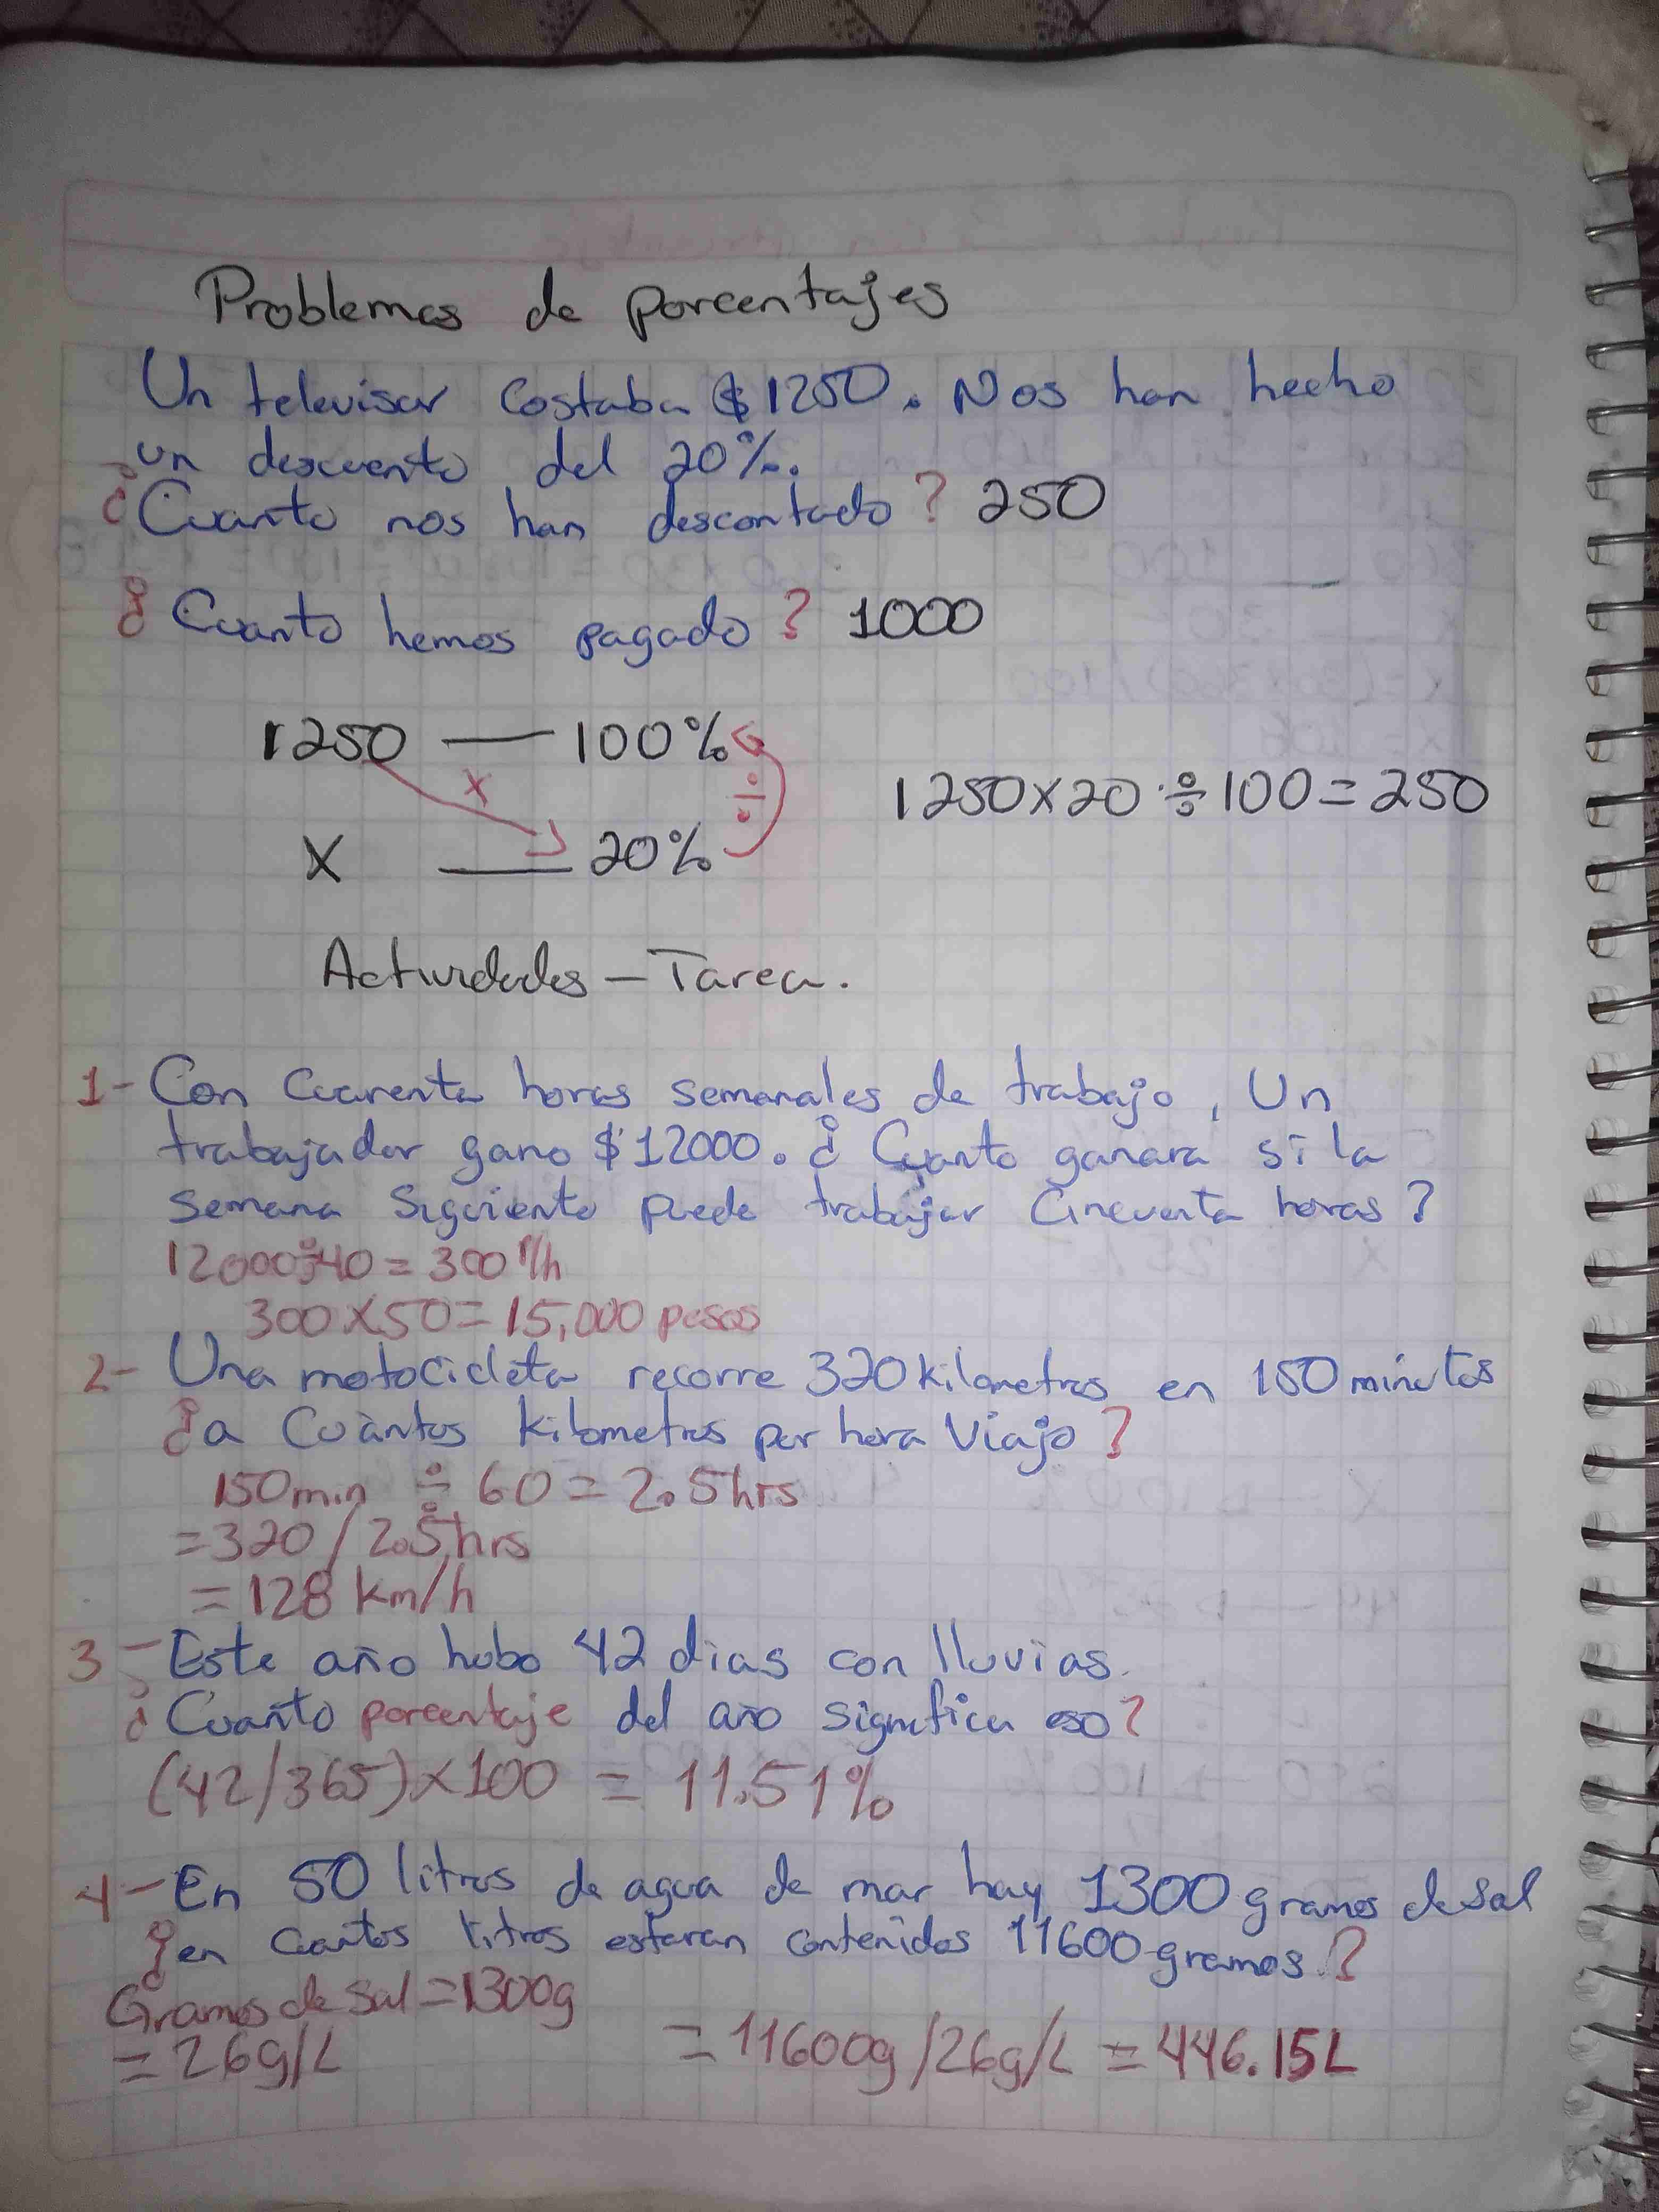 Problemas de porcentajes
Un televisor Costaba $1250. Nos han hecho
un descuento del 20%.
¿Cuanto nos han descontado? 250
¿Cuanto hemos pagado? 1000
1250 — 100%
x ÷
1250x20÷100=250
X — 20%
Actividades - Tarea.
1- Con Cuarenta horas semanales de trabajo, Un
trabajador gano $12000. ¿Cuanto ganara si la
semana Siguiente puede trabajar Cincuenta horas?
12000÷40=300
300x50=15,000 pesos
2- Una motocicleta recorre 320 kilometros en 150 minutos
¿a Cuàntos Kilometros por hora Viajo?
150min ÷ 60=2.5hrs
=320/2.5hrs
=128 km/h
3- Este año hubo 42 dias con lluvias.
¿Cuanto porcentaje del año significa eso?
(42/365)x100 = 11.51%
4- En 50 litros de agua de mar hay 1300 gramos de sal
¿en Cuantos litros estaran contenidos 11600 gramos?
Gramos de sal=1300g
=26g/L
=11600g/26g/L = 446.15L